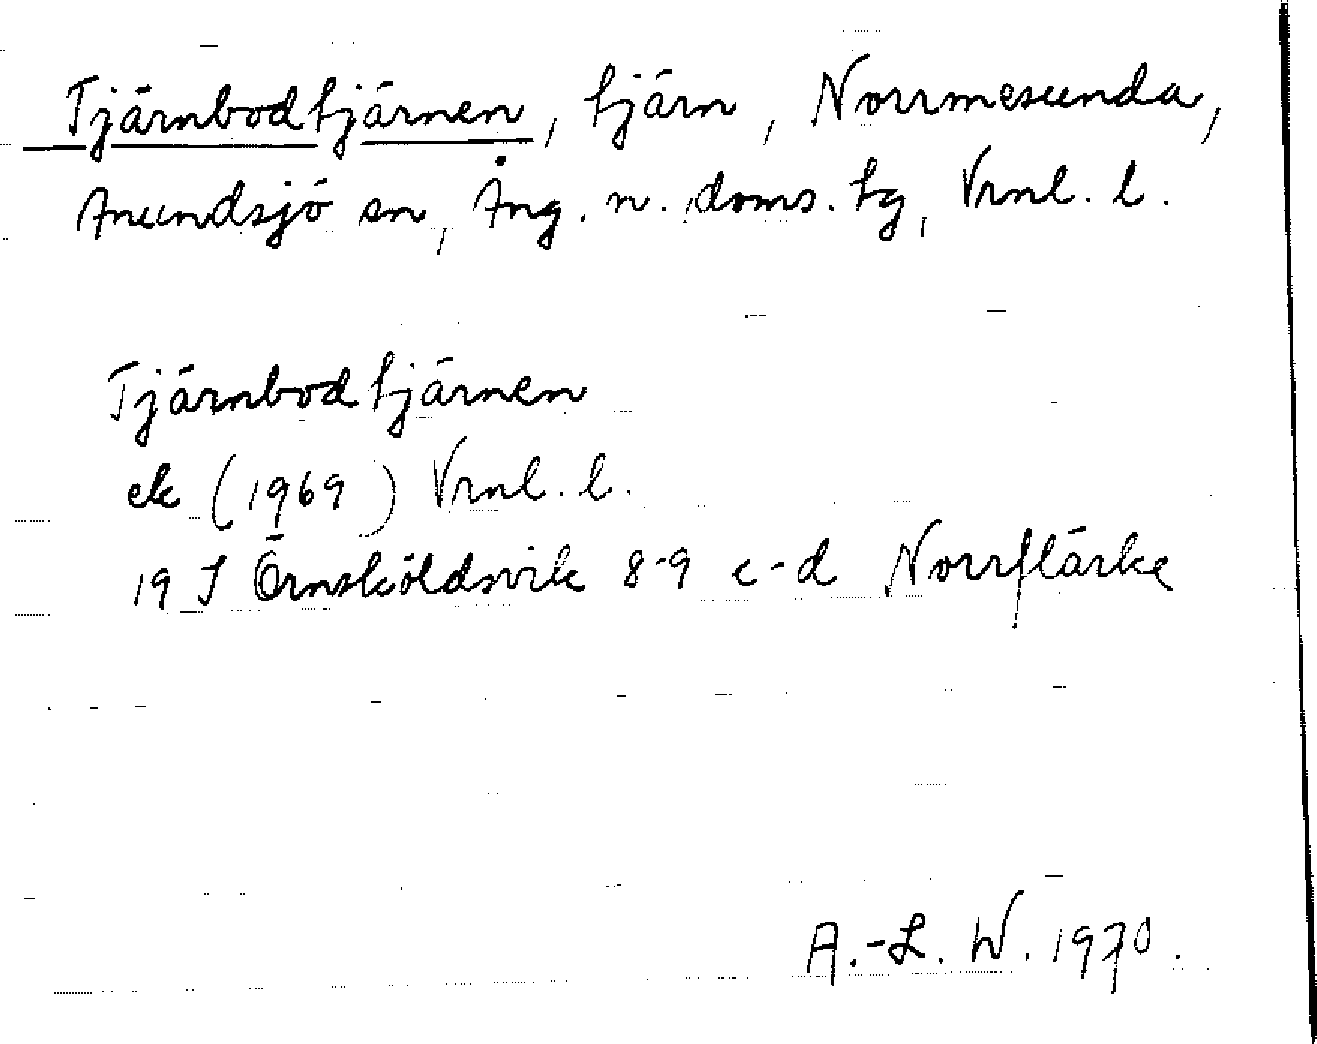 Tjärnbodtjärnen, tjärn, Norrmesunda,
Anundsjö sn, Ång. n. doms. tg, Vrnl. l.
Tjärnbodtjärnen
ek (1969) Vrnl. l.
19 J Örnsköldsvik 8-9 c-d Norrflärke
A.-L. W. 1970.